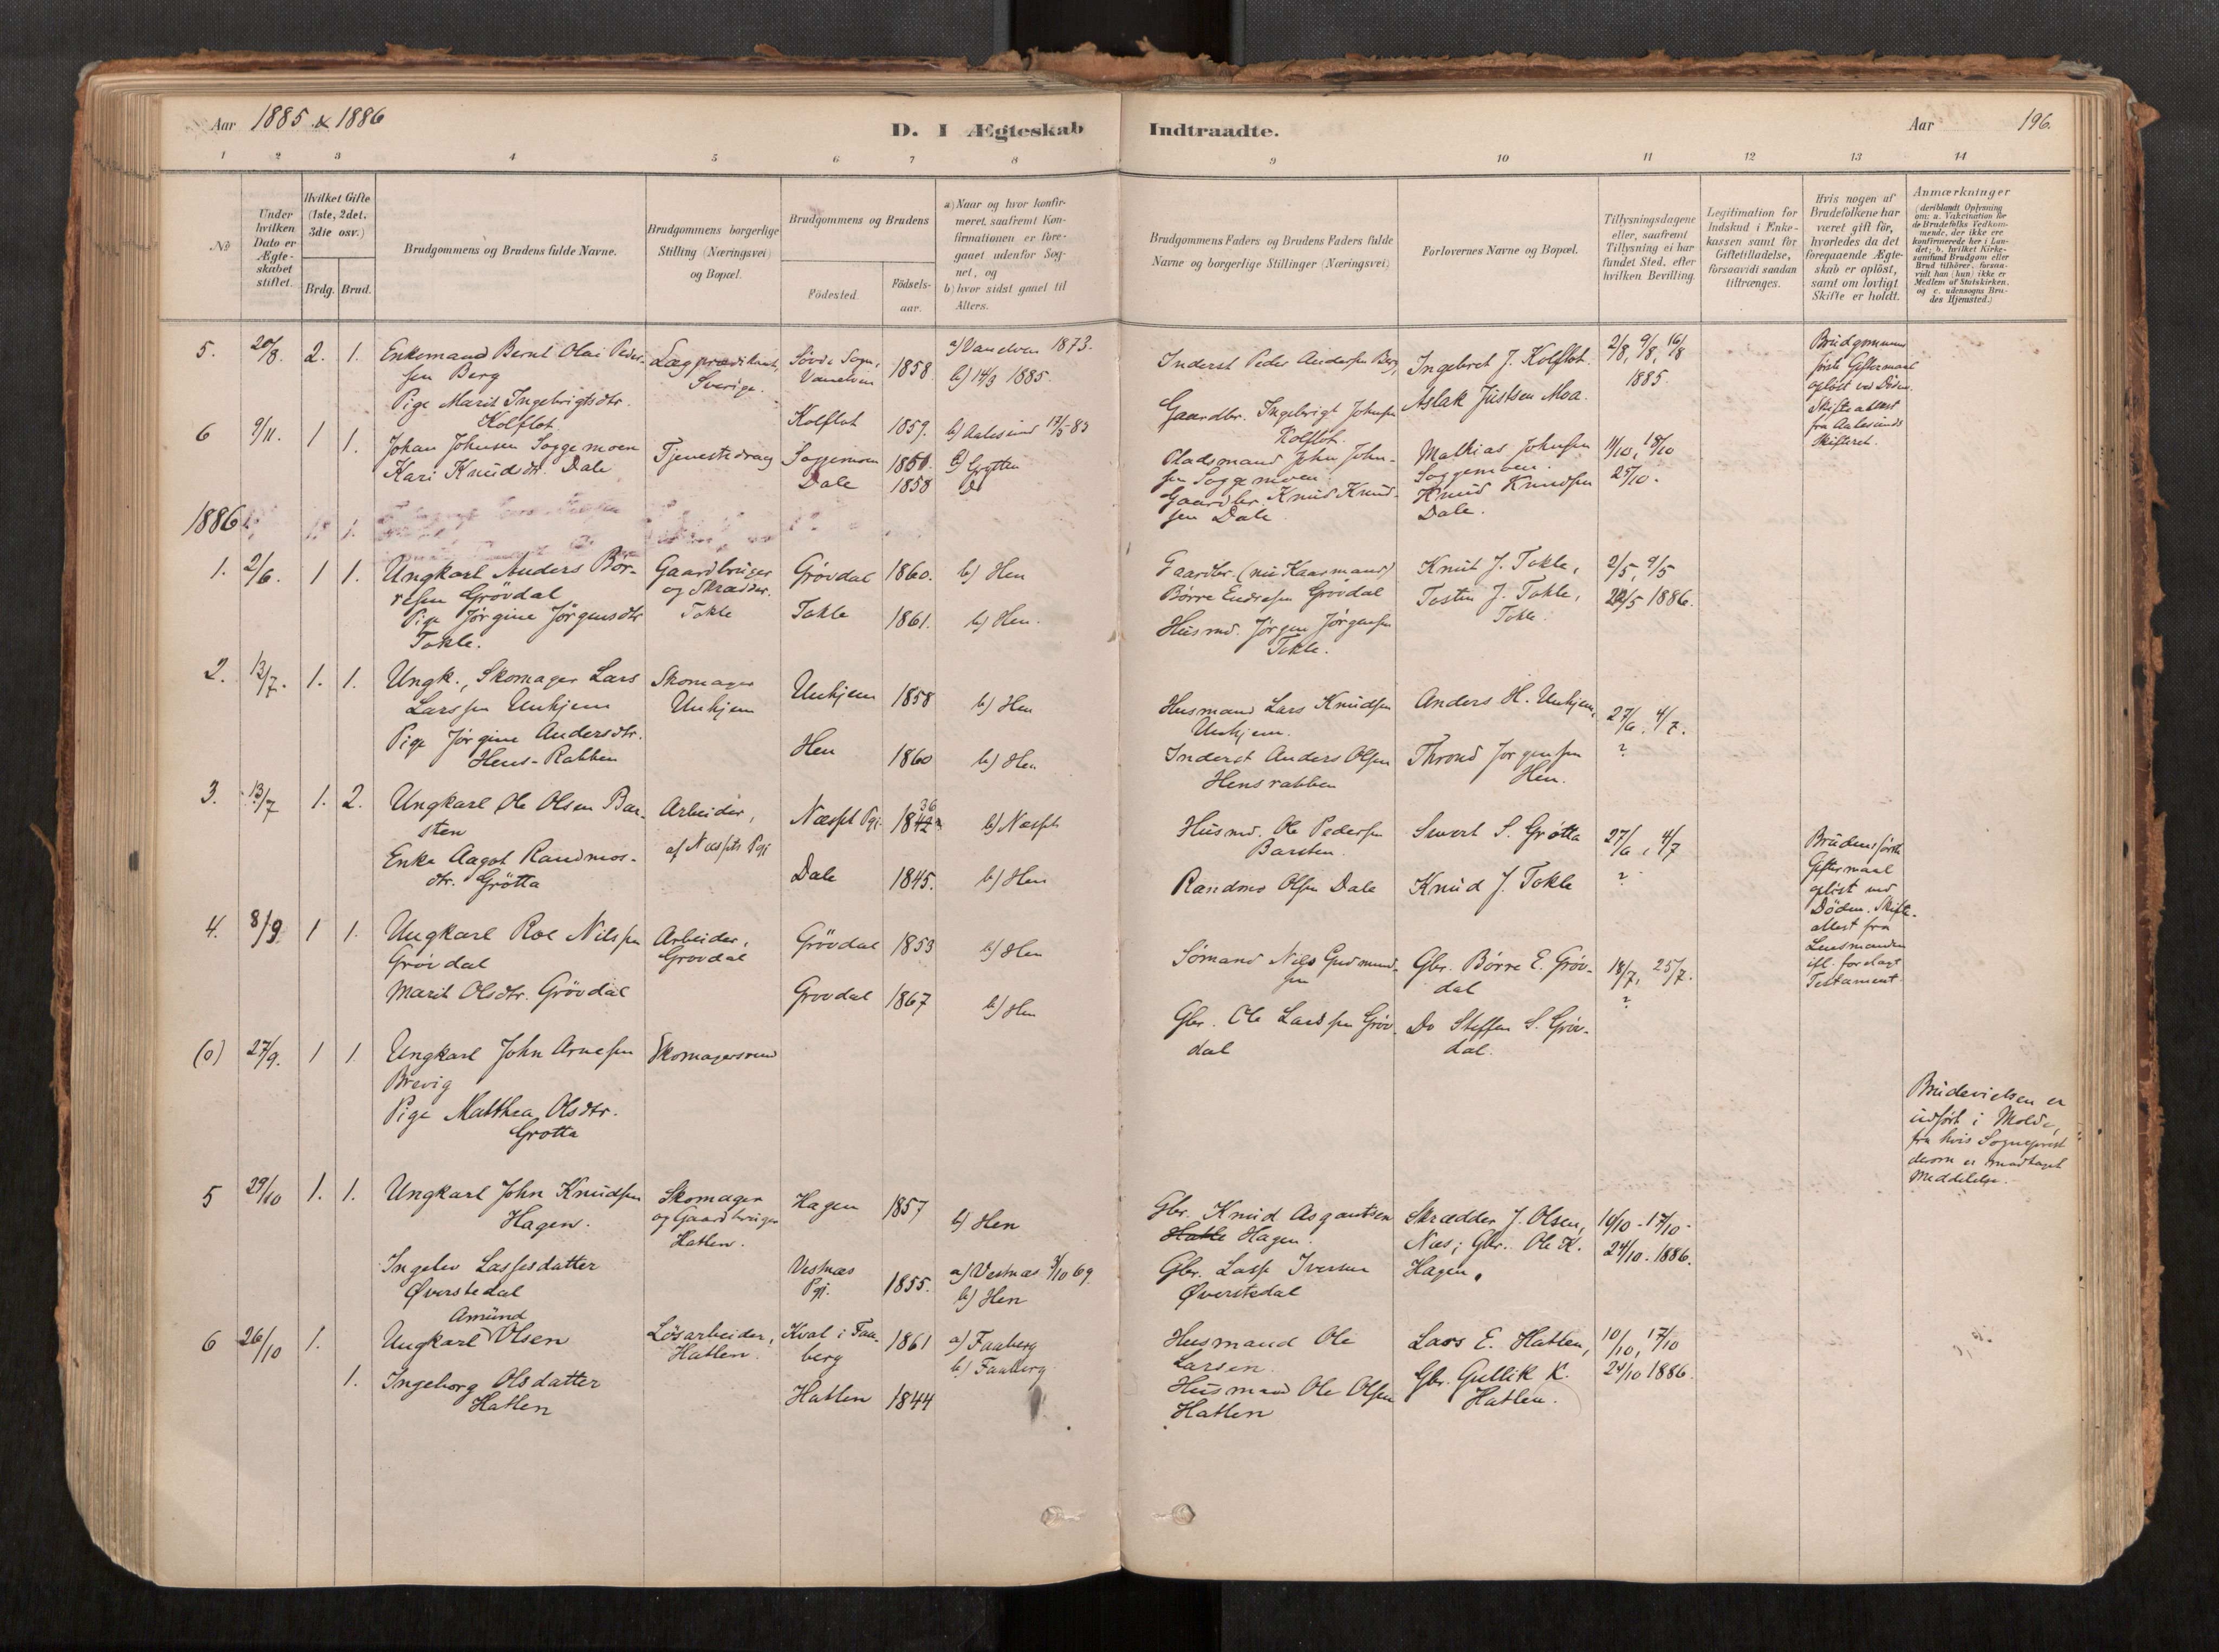 Aar 1885 & 1886
D. I Ægteskab Indtraadte.
Aar 196.
1 2 3 4 5 6 7 8 9 10 11 12 13 14
No
Under hvilken Dato er Ægteskabet stiftet.
Hvilket Gifte (1ste, 2det, 3die osv.)
Brdg. Brud.
Brudgommens og Brudens fulde Navne.
Brudgommens borgerlige Stilling (Næringsvei) og Bopæl.
Brudgommens og Brudens
Födested.
Födsels-aar.
a) Naar og hvor konfir-
meret, saafremt Kon-
firmationen er fore-
gaaet udenfor Sog-
net, og
b) hvor sidst gaaet til
Alters.
Brudgommens Faders og Brudens Faders fulde
Navne og borgerlige Stillinger (Næringsvei)
Forlovernes Navne og Bopæl.
Tillysningsdagene
eller, saafremt
Tillysning ei har
fundet Sted, efter
hvilken Bevilling.
Legitimation for
Indskud i Enke-
kassen samt for
Giftetilladelse,
forsaavidt saadan
tiltrænges.
Hvis nogen af
Brudefolkene har
været gift før,
hvorledes da det
foregaaende Ægte-
skab er oplöst,
samt om lovligt
Skifte er holdt.
Anmærkninger
(deriblandt Oplysning
om: a. Vakcination for
de Brudefolks Vedkom-
mende, der ikke ere
konfirmerede her i Lan-
det; b. hvilket Kirke-
samfund Brudgom eller
Brud tilhörer, forsaa-
vidt han (hun) ikke er
Medlem af Statskirken.
og c. udensogns Bru-
des Hjemsted.)
5. 20/8. 2. 1. Enkemand Bernt Olai Peder-
sen Berg
Pige Marit Ingebrigtsdtr.
Kolflot.
Lægprædikant,
Sverige.
Søvde Sogn,
Vanelven 1858
Kolflot 1859.
a) Vanelven 1873.
b) 14/3 1885.
b) Aalesund 17/5-83
Inderst Peder Andersen Berg,
Gaardbr. Ingebrigt Johnsen
Kolflot.
Ingebret J. Kolflot.
Aslak Justsen Moa.
2/8, 9/8, 16/8
1885.
Brudgommens
første Giftermaal
opløst ved Døden.
Skifteattest
fra Aalesunds
Skifteret.
6 9/11. 1 1. Johan Johnsen Soggemoen
Kari Knudsdtr. Dale
Tjenestedreng
Soggemoen
Dale 1858
b) Grytten
Do
Pladsmand John John-
sen Soggemoen
Gaardbr. Knud Knud-
sen Dale
Mathias Johnsen
Soggemoen.
Knud Knudsen
Dale.
11/10, 18/10
25/10.
1886
1. 2/6. 1 1. Ungkarl Anders Bör-
resen Grövdal
Pige Jörgine Jörgensdtr
Tokle.
Gaardbruger
og Skrædder.
Tokle
Grövdal 1860.
Tokle 1861.
b) Hen
b) Hen.
Gaardbr. (nu Kaarmand)
Börre Endresen Grövdal
Husmd. Jörgen Jörgensen
Tokle.
Knut J. Tokle,
Tosten J. Tokle,
Tokle.
2/5, 9/5
1886.
2. 13/7. 1. 1. Ungk., Skomager Lars
Larssen Unhjem
Pige Jörgine Andersdtr.
Hens-Rabben
Skomager
Unhjem
Unhjem 1858
Hen 1860
b) Hen
b) Hen
Husmand Lars Knudsen
Unhjem.
Inderst Anders Olsen
Hensrabben
Anders H. Unhjem,
Thrond Jørgensen
Hen.
27/6, 4/7.
?
3. 13/7 1. 2. Ungkarl Ole Olsen Bar-
sten
Enke Aagot Randmos-
dtr. Grötta
Arbeider,
af Næssets Pgj
Næsset Pgj. 1842 36
Dale 1845.
b) Næsset
b) Hen
Husmd. Ole Pedersen
Barsten.
Randmo Olsen Dale
Sivert S. Grötta
Knud J. Tokle
27/6, 4/7
?
Brudens første
Giftermaal
opløst ved
Døden. Skifte-
attest fra
Lensmanden
ifl. forelagt
Testament
4. 8/9 1 1. Ungkarl Roe Nilssen
Grövdal
Marit Olsdtr. Grövdal
Arbeider,
Grövdal
Grövdal 1853
Grövdal 1867
b) Hen
b) Hen
Sömand Nils Gudmund-
sen
Gbr. Ole Larssen Gröv-
dal
Gbr. Börre E. Gröv-
dal
Do Steffen S. Gröv-
dal.
18/7, 25/7.
?
(0) 27/9. 1 1. Ungkarl John Arnesen
Brevig
Pige Matthea Olsdtr.
Grotta
Skomagersvend
Brudevielsen er
udført i Molde,
fra hvis Sognepræst
derom er modtaget
Meddelelse.
5 29/10 1. 1. Ungkarl John Knudsen
Hagen.
Ingelev Lassesdatter
Øverstedal
Skomager
og Gaardbruger
Hatlen.
Hagen 1857
Vestnæs
Pgj. 1855.
b) Hen
a) Vestnæs 3/10 69.
b) Hen
Gbr. Knud Asgautsen
Hatle Hagen.
Gbr. Lasse Iversen
Øverstedal
Skrædder J. Olsen,
Næs; Gbr. Ole K.
Hagen.
10/10 - 17/10 -
24/10. 1886.
6 26/10 1. Amund
Ungkarl Olsen
1. Ingeborg Olsdatter
Hatlen
Lösarbeider,
Hatlen.
Kval i Faa-
berg 1861
Hatlen 1844
a) Faaberg
b) Faaberg
Husmand Ole
Larsen.
Husmand Ole Olsen
Hatlen
Lars E. Hatlen,
Gbr. Gullik K.
Hatlen.
10/10, 17/10
24/10 1886.